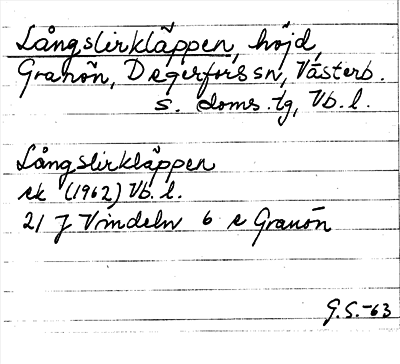 Långslirkläppen, höjd,
Granön, Degerfors sn, Västerb.
s. doms.tg, Vb. l.
Långslirkläppen
ek (1962) Vb. l.
21 J Vindeln 6 e Granön
G.S.-63